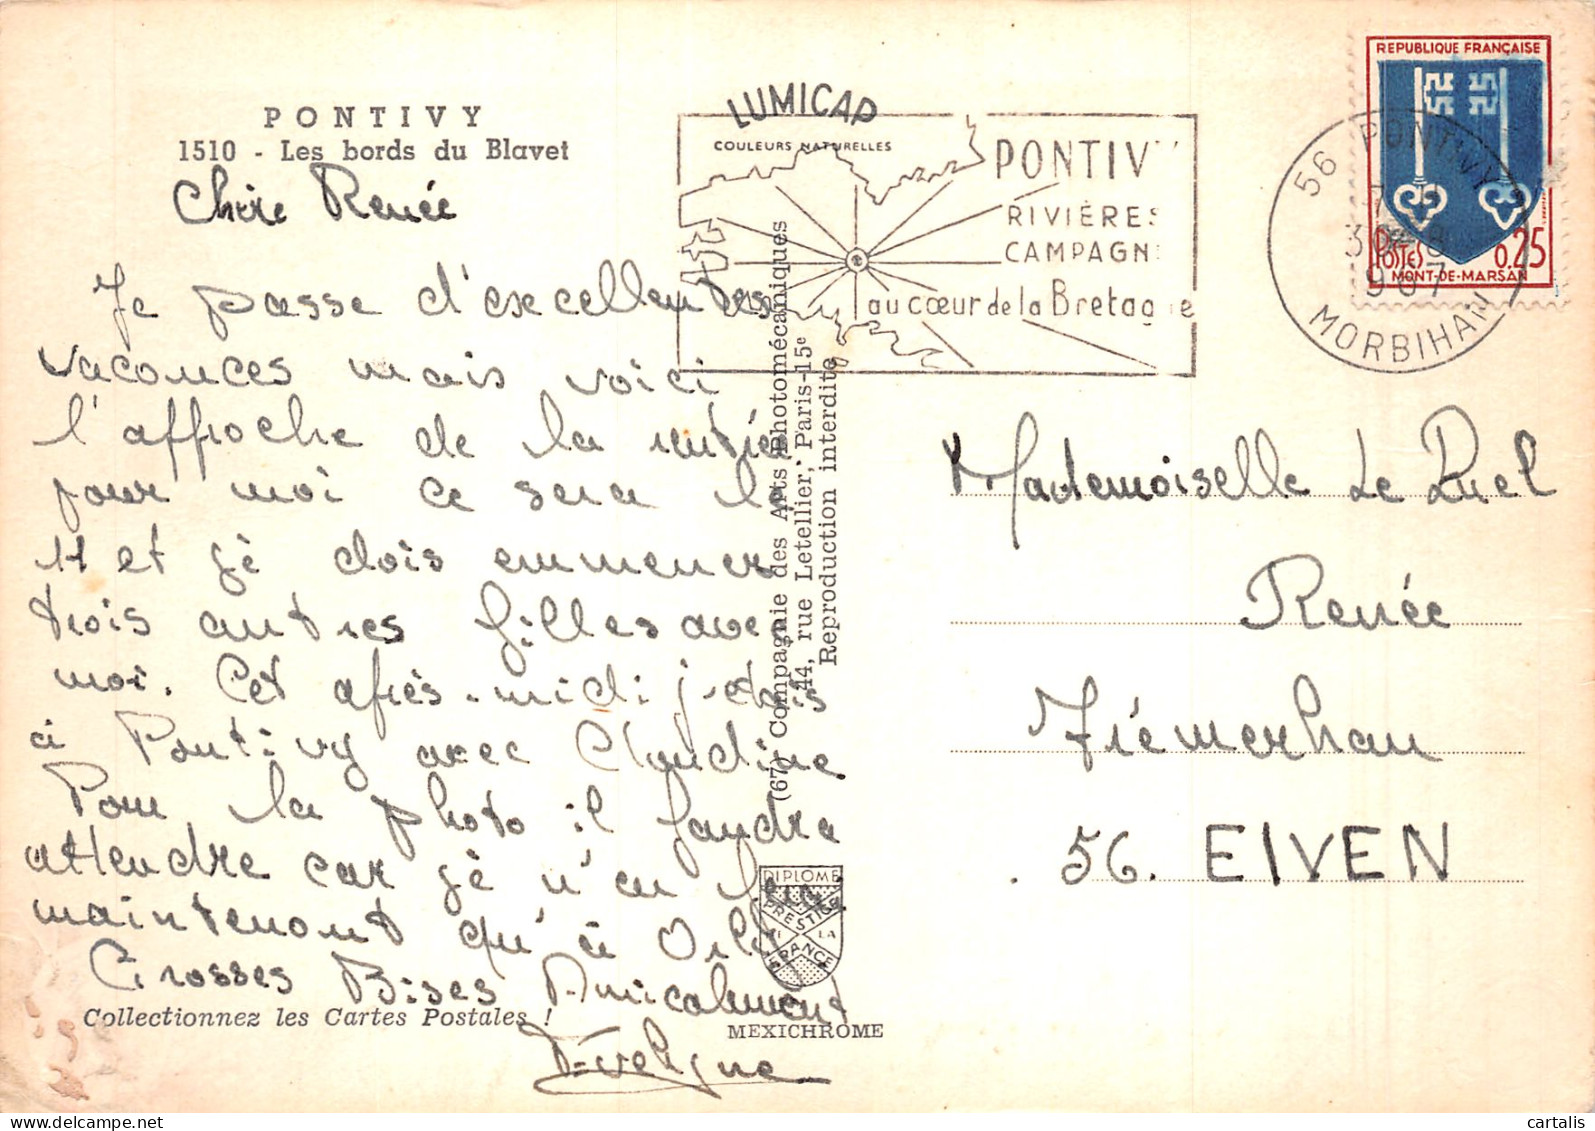 PONTIVY
1510 - Les bords du Blavet
Chère Renée
Je passe d'excellentes
vacances mais voici
l'affroche de la rentrée
pour moi ce sera le
11 et je dois emmener
trois autres filles avec
moi. Cet après-midi j'étais
à Pontivy avec Claudine
Pour la photo il faudra
attendre car je n'en
maintenant qu'à
Grosses Bises Amicalement
Evelyne
Collectionnez les Cartes Postales !
LUMICAP
COULEURS NATURELLES
PONTIVY
RIVIÈRES
CAMPAGNE
au cœur de la Bretagne
(67) Compagnie des Arts Photomécaniques
44, rue Letellier, Paris-15e
Reproduction interdite
DIPLOME
PRESTIGE
DE LA
FRANCE
MEXICHROME
REPUBLIQUE FRANÇAISE
POSTES 0.25
MONT-DE-MARSAN
56 PONTIVY
MORBIHAN
Mademoiselle Le Luel
Renée
Trémerhan
56. ELVEN
cartalis
delcampe.net